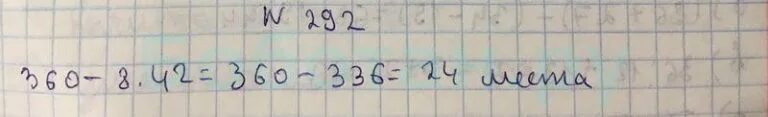 N 292
360 - 8 . 42 = 360 - 336 = 24 места